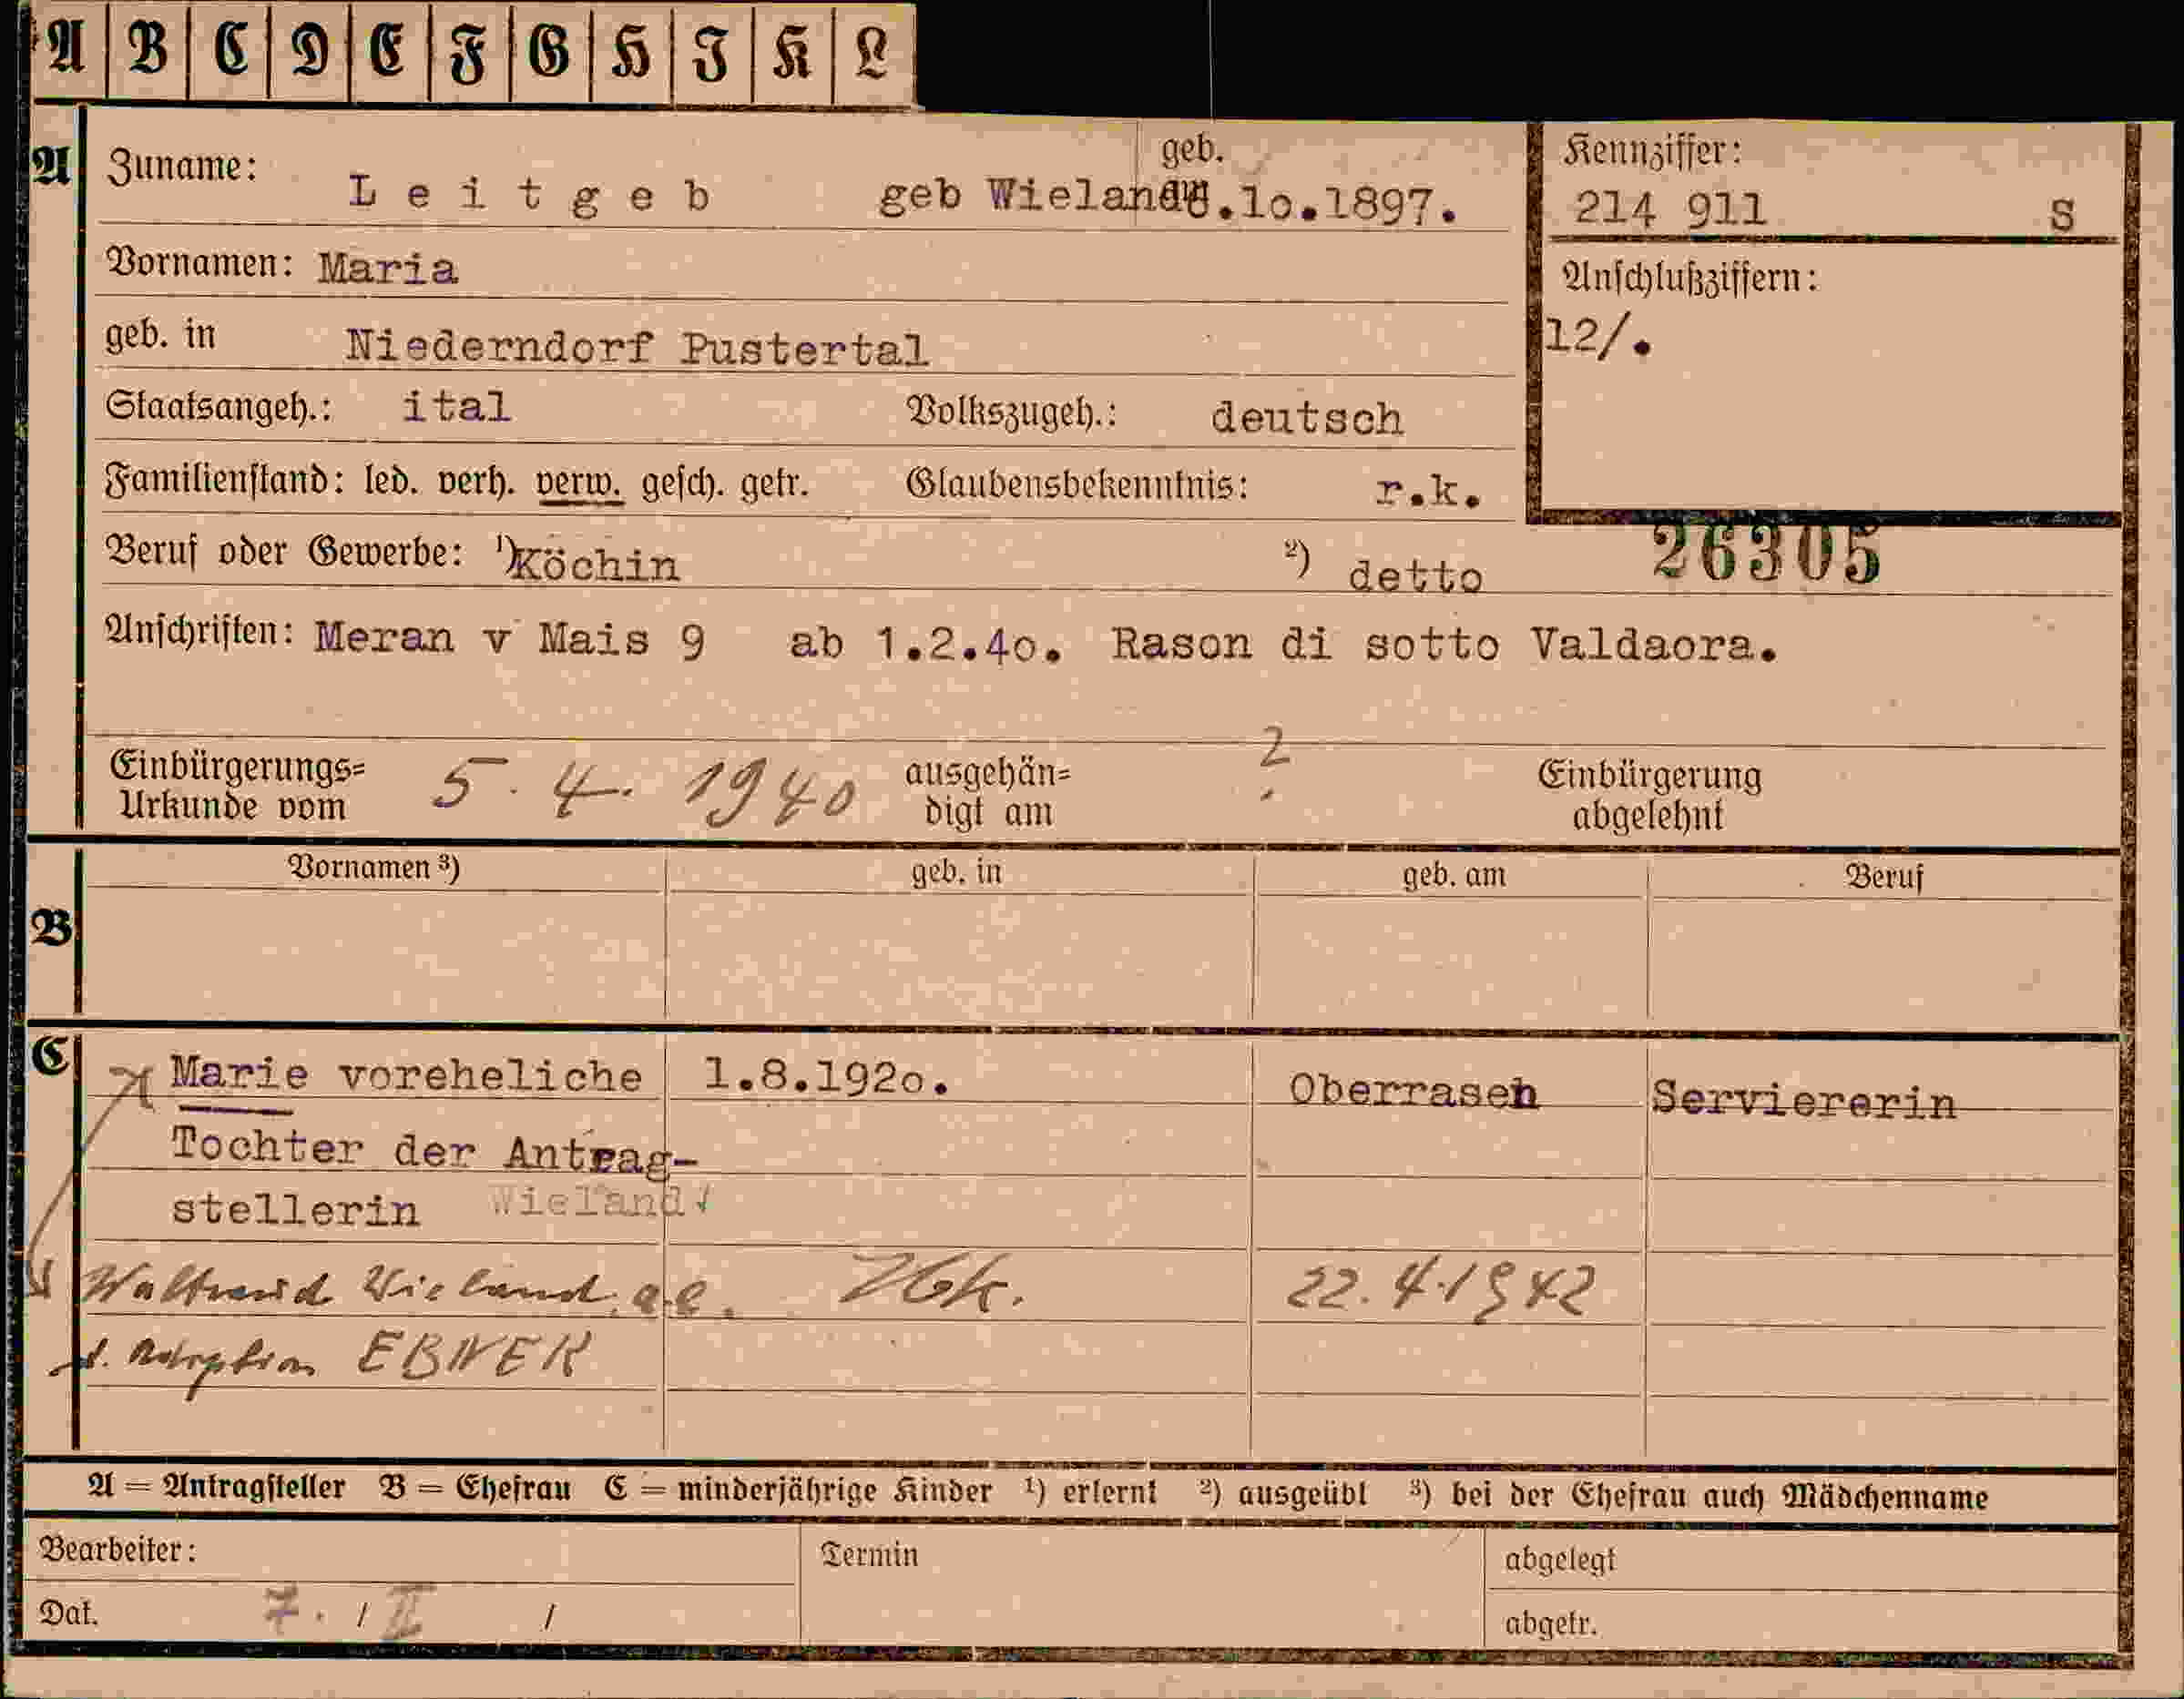 A B C D E F G H I K L
A Zuname: Leitgeb geb Wieland geb. .10.1897.
Kennziffer:
214 911 S
Vornamen: Maria
Anschlußziffern:
12/.
geb. in Niederndorf Pustertal
Staatsangeh.: ital Volkszugeh.: deutsch
Familienstand: led. verh. verw. gesch. getr. Glaubensbekenntnis: r.k.
Beruf oder Gewerbe: 1) Köchin 2) detto
26305
Anschriften: Meran v Mais 9 ab 1.2.40. Rason di sotto Valdaora.
Einbürgerungs=
Urkunde vom 5. 4. 1940 ausgehän=
digt am ? Einbürgerung
abgelehnt
Vornamen 3) geb. in geb. am Beruf
B
C Marie voreheliche 1.8.1920. Oberrasen Serviererin
Tochter der Antrag-
stellerin Wieland
Waltraud Wieland a.e. 22.4.1942
d. Adoption EBNER
A = Antragsteller B = Ehefrau C = minderjährige Kinder 1) erlernt 2) ausgeübt 3) bei der Ehefrau auch Mädchenname
Bearbeiter: Termin abgelegt
Dat. 7. / II / abgetr.